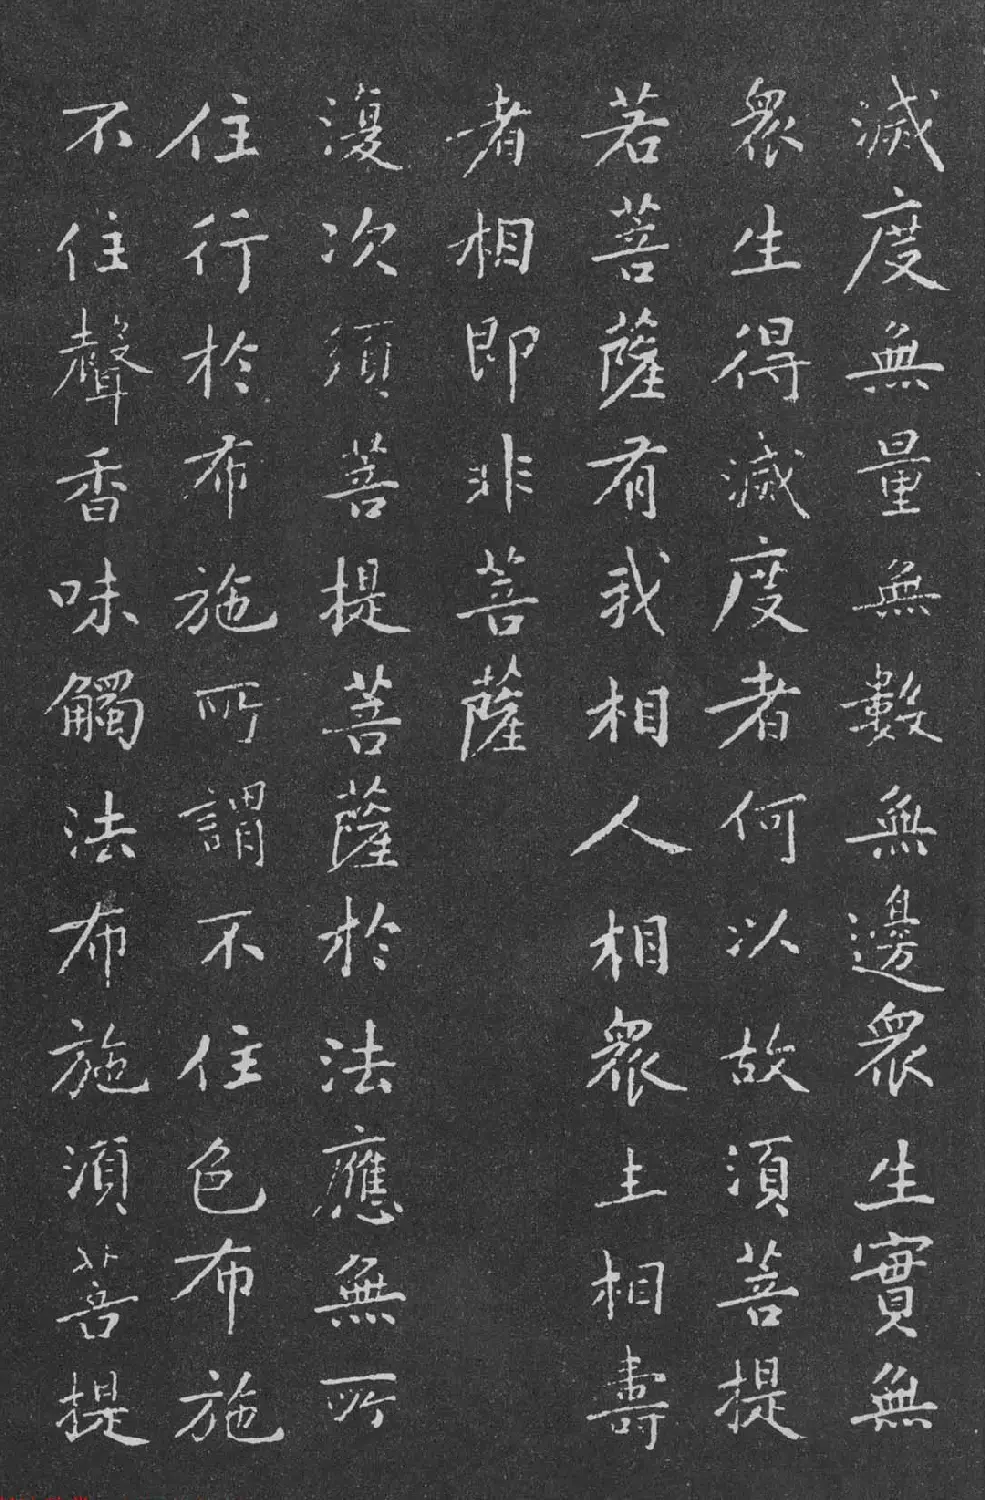 滅度無量無數無邊眾生實無
眾生得滅度者何以故須菩提
若菩薩有我相人相眾生相壽
者相即非菩薩
復次須菩提菩薩於法應無所
住行於布施所謂不住色布施
不住聲香味觸法布施須菩提